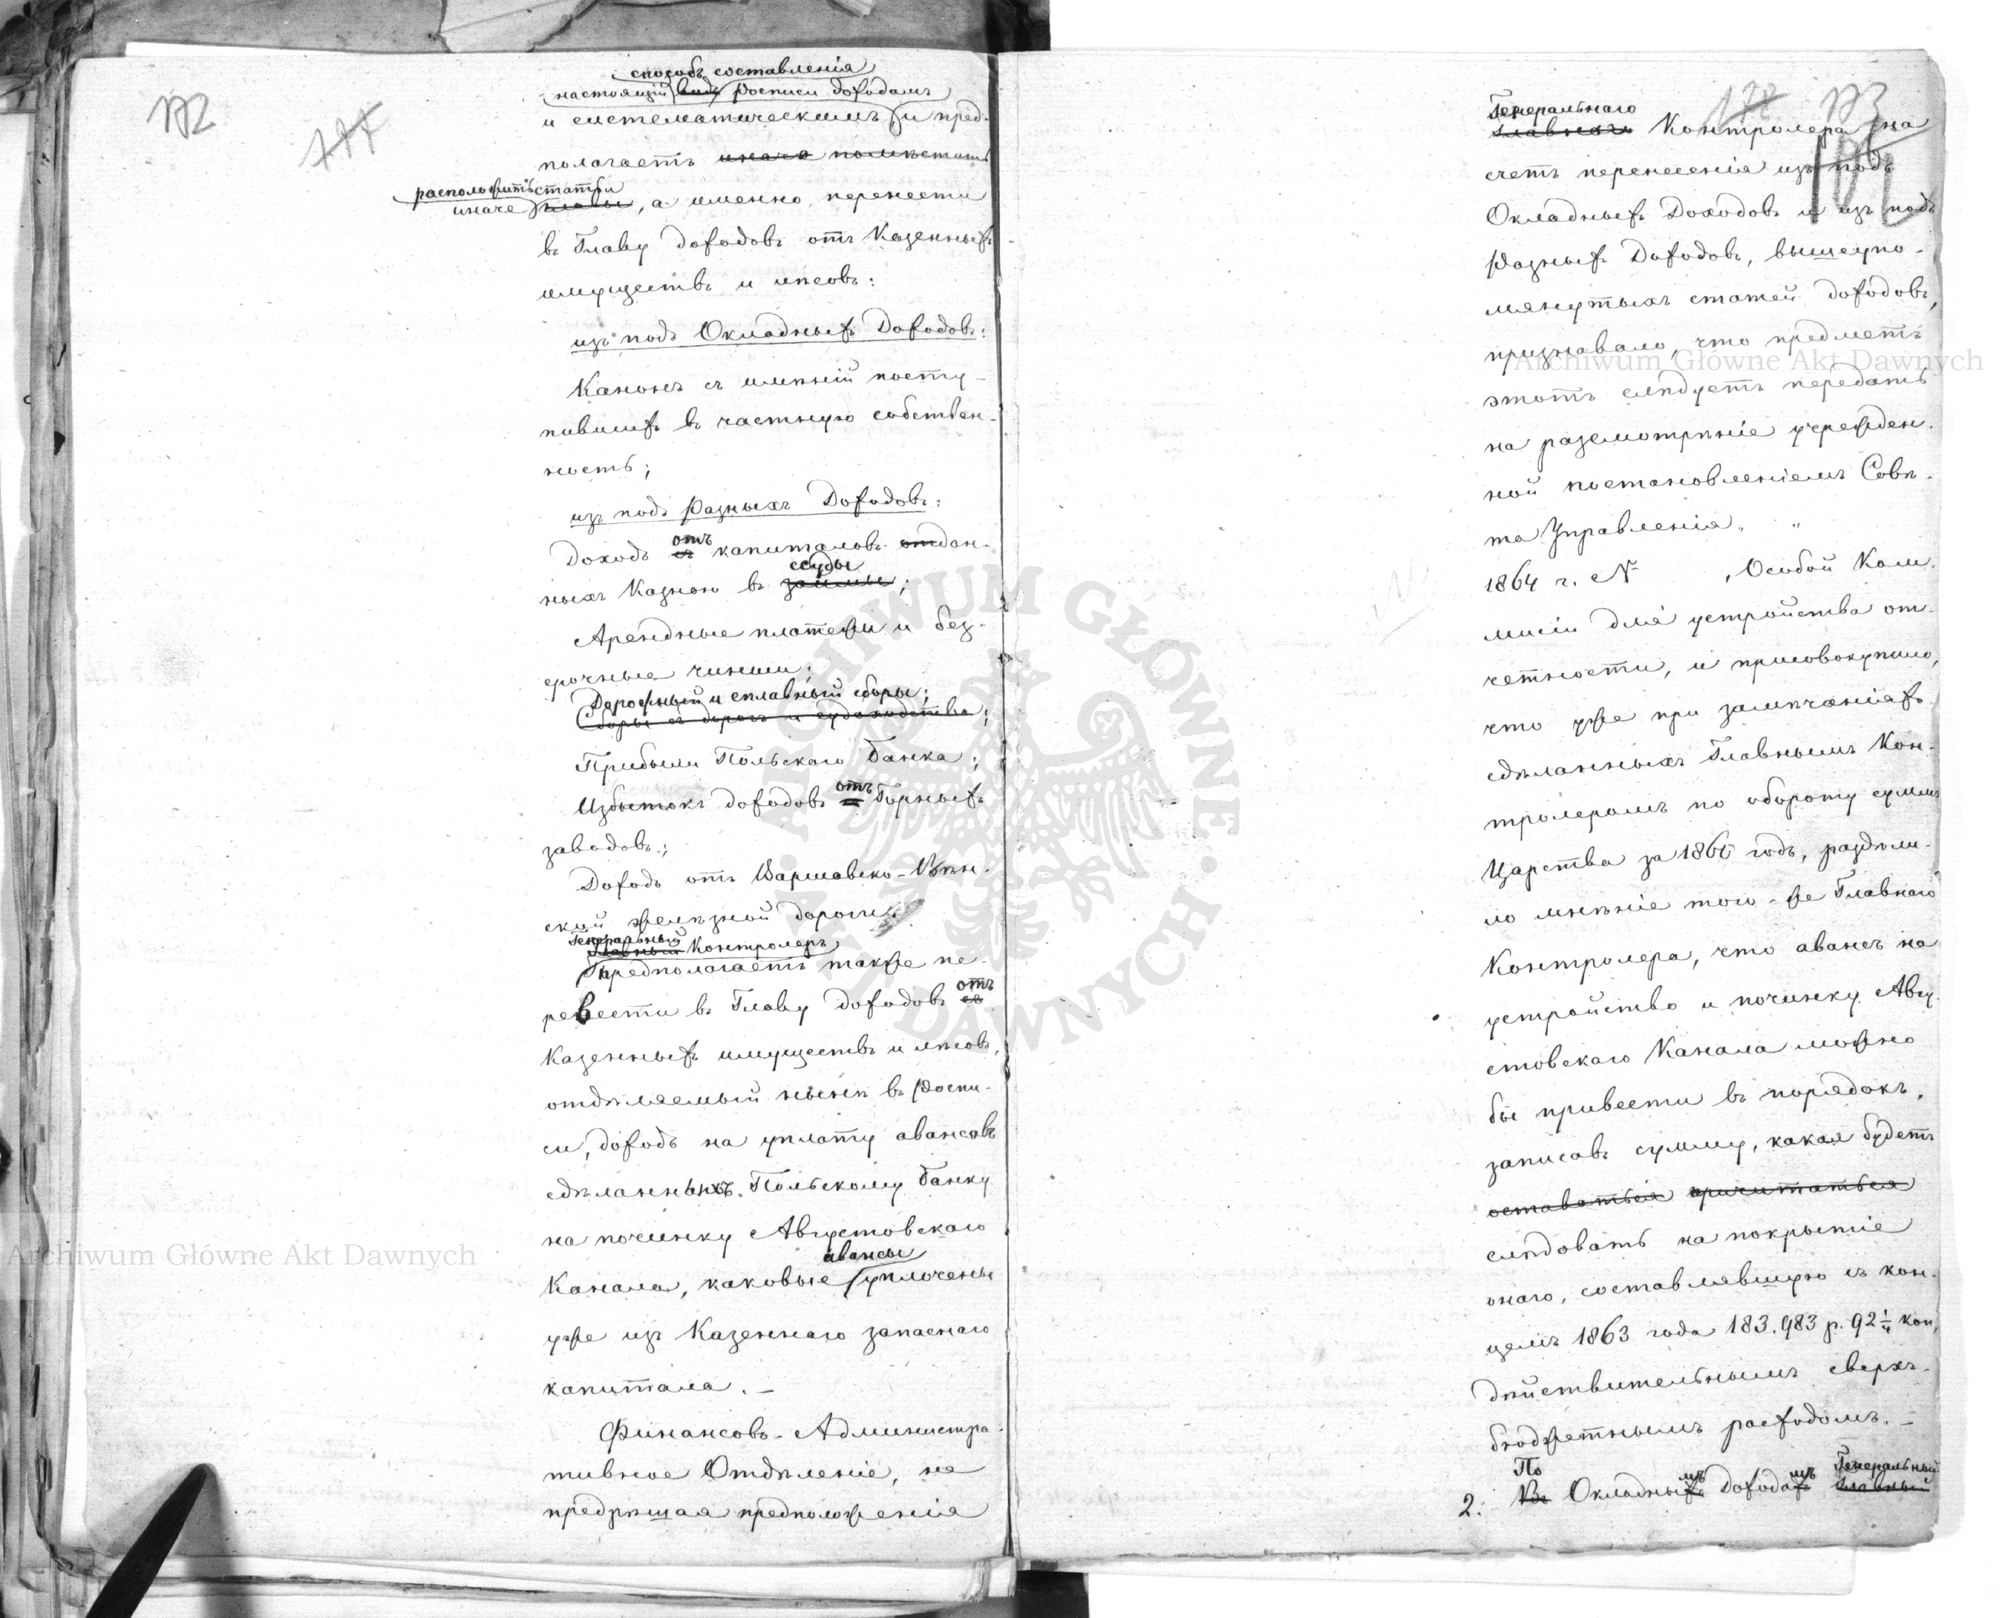 172
177
способъ составленія
настоящій видъ росписи доходамъ
и систематическимъ и пред-
полагаетъ иначе помѣстить
расположить статьи
иначе главы, а именно, перенести
въ Главу доходовъ отъ Казенныхъ
имуществъ и лѣсовъ:
изъ подъ Окладныхъ Доходовъ:
Канонъ съ имѣній посту-
пившихъ въ частную собствен-
ность;
изъ подъ Разныхъ Доходовъ:
отъ
Доходъ съ капиталовъ отдан-
ссуды
ныхъ Казною въ займы;
Арендные платежи и без-
срочные чинши;
Дорожный и сплавный сборы;
Сборы съ дорогъ и судоходства;
Прибыли Польскаго Банка;
отъ
Избытокъ доходовъ съ Горныхъ
заводовъ;
Доходъ отъ Варшавско-Вѣн-
ской желѣзной дороги.
Генеральный
Главный Контролеръ
Предполагаетъ также пе-
отъ
ревести въ Главу доходовъ съ
Казенныхъ имуществъ и лѣсовъ,
отдѣляемый нынѣ въ Роспи-
си, доходъ на уплату авансовъ
сдѣланныхъ Польскому Банку
на починку Августовскаго
авансы
Канала, каковые уплочены
уже изъ Казеннаго запаснаго
капитала. —
Финансово-Администра-
тивное Отдѣленіе, не
предрѣшая предположенія
178 173
Генеральнаго
Главнаго Контролера на
счетъ перенесенія изъ подъ
Окладныхъ Доходовъ и изъ подъ
Разныхъ Доходовъ, вышеупо-
мянутыхъ статей доходовъ,
признавало, что предметъ
этотъ слѣдуетъ передать
на разсмотрѣніе учрежден-
ной постановленіемъ Совѣ-
та Управленія „ „
1864 г. №, Особой Ком-
мисіи для устройства от-
четности, и присовокупило,
что уже при замѣчаніяхъ
сдѣланныхъ Главнымъ Кон-
тролеромъ по обороту суммъ
Царства за 1860 годъ, раздѣли-
ло мнѣніе того-же Главнаго
Контролера, что авансъ на
устройство и починку Авгу-
стовскаго Канала можно
бы привести въ порядокъ,
записавъ сумму, какая будетъ
оставаться причитаться
слѣдовать на покрытіе
онаго, составлявшую съ кон-
цемъ 1863 года 183.983 р. 92¼ коп,
дѣйствительнымъ сверхъ-
бюджетнымъ расходомъ. —
По мъ мъ Генеральный
2. Въ Окладныхъ Доходахъ Главный
Archiwum Główne Akt Dawnych
Archiwum Główne Akt Dawnych
ARCHIWUM GŁÓWNE AKT DAWNYCH